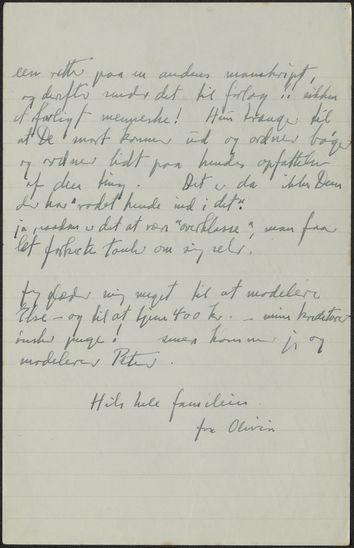 een retter paa en andens manuskript,
og derefter sender det til forlag!! sikken
et farligt menneske! Hun trænger til
at De snart kommer ud og ordner bøger
og ordner lidt paa hendes opfattelse
af den ting. Det er da ikke Dem
der har "rodet hende ind i det".
ja, saadan er det at være "overklasse", man faar
let forkerte tanker om sig selv.
Jeg glæder mig meget til at modelere
Else – og til at tjene 400 kr. – mine kreditorer
ønsker penge! snart kommer jeg og
modelerer Peter.
Hils hele familien
fra Olivia